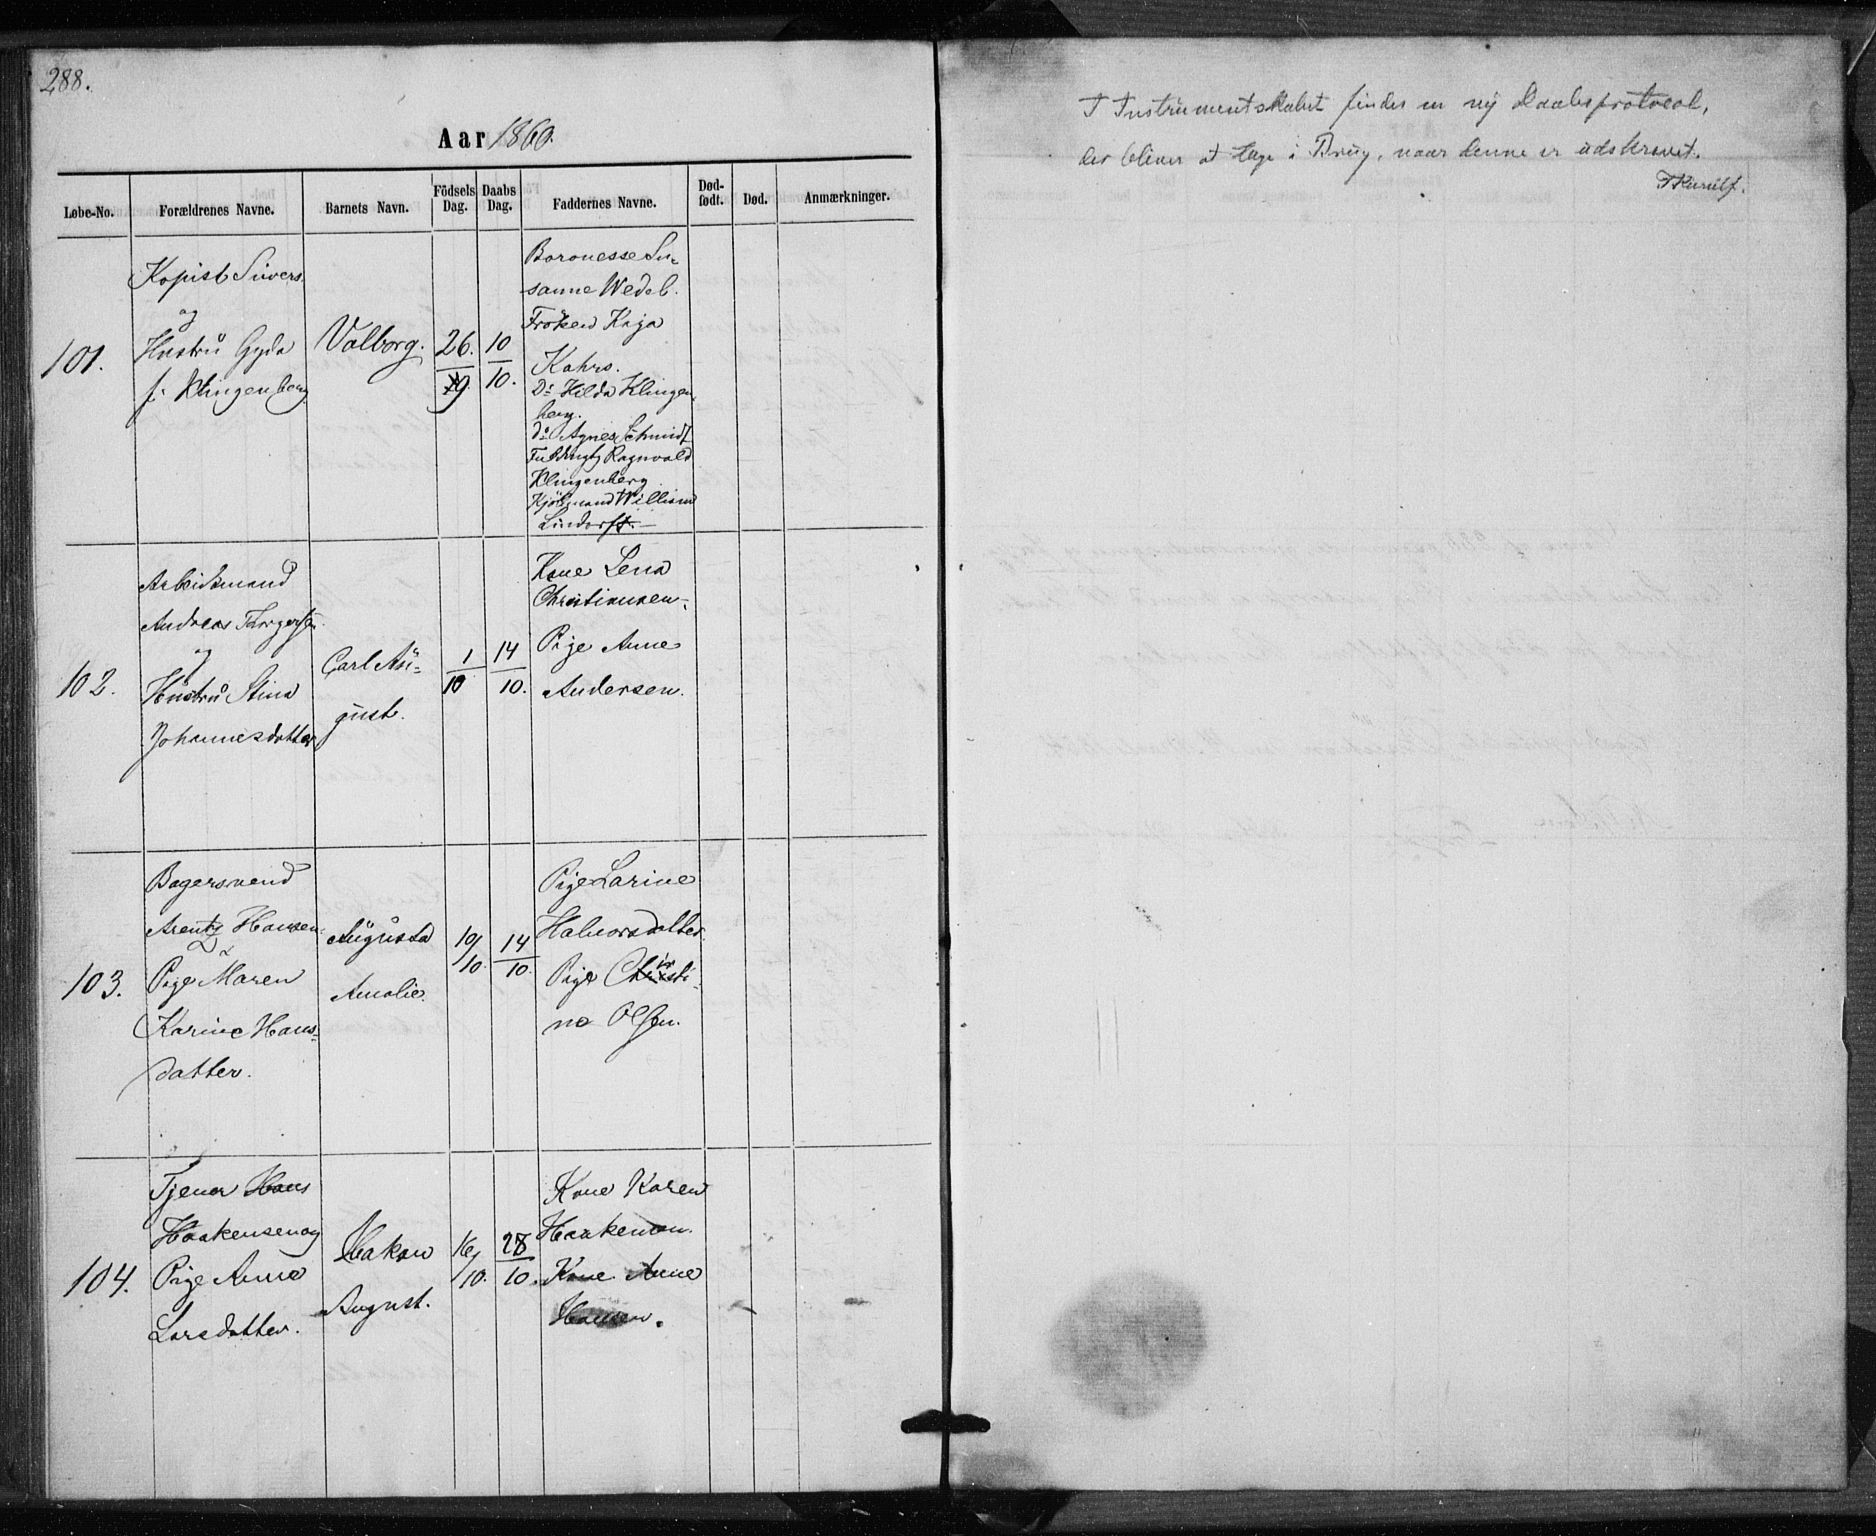 288.
Aar 1860.
Løbe-No.
Forældrenes Navne.
Barnets Navn.
Födsels Dag.
Daabs Dag.
Faddernes Navne.
Död-födt.
Död.
Anmærkninger.
101.
Kopist Siivers
og
Hustrü Gyda
f. Klingenberg
Valborg.
26.
9
10
10.
Baronesse Su-
sanne Wedel.
Fröken Kaja
Kahrs.
Do Hilda Klingen-
berg.
do Agnes Schmidt
Fuldmgtg Ragnvald
Klingenberg.
Kjöbmand William
Lindorff.
102.
Arbeidsmand
Andreas Thorgersen
og
Hustrü Stina
Johannesdatter
Carl Aü-
güst.
1
10
14
10.
Kone Lena
Christiansen.
Pige Anne
Andersen.
103.
Bagersvend
Arentz Hansen
&
Pige Maren
Karine Hans-
datter.
Aügüsta
Amalie.
10/10.
14
10.
Pige Larine
Halvorsdatter.
Pige Christi-
na Olsen.
104.
Tjener Hans
Haakensen og
Pige Anna
Larsdatter.
Hakon
August.
16/10.
28
10.
Kone Karen
Haakensen.
Kone Anne
Hansen.
I Instrümentskabet findes en ny Daabsprotocol,
der bliver at tage i Brüg, naar denne er üdskrevet.